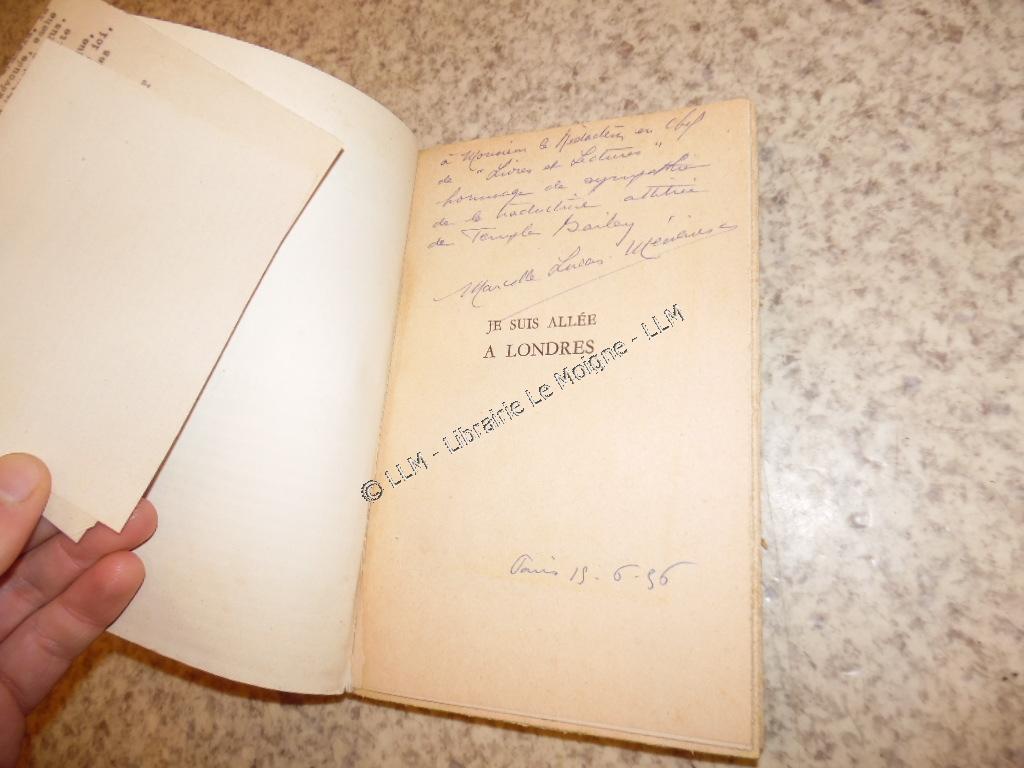 à Monsieur le Rédacteur en Chef
de "Livres et Lectures"
hommage de sympathie
de la traductrice attitrée
de Temple Bailey
Marcelle Lucas
JE SUIS ALLÉE
A LONDRES
© LLM - Librairie Le Moigne - LLM
Paris 15-6-56